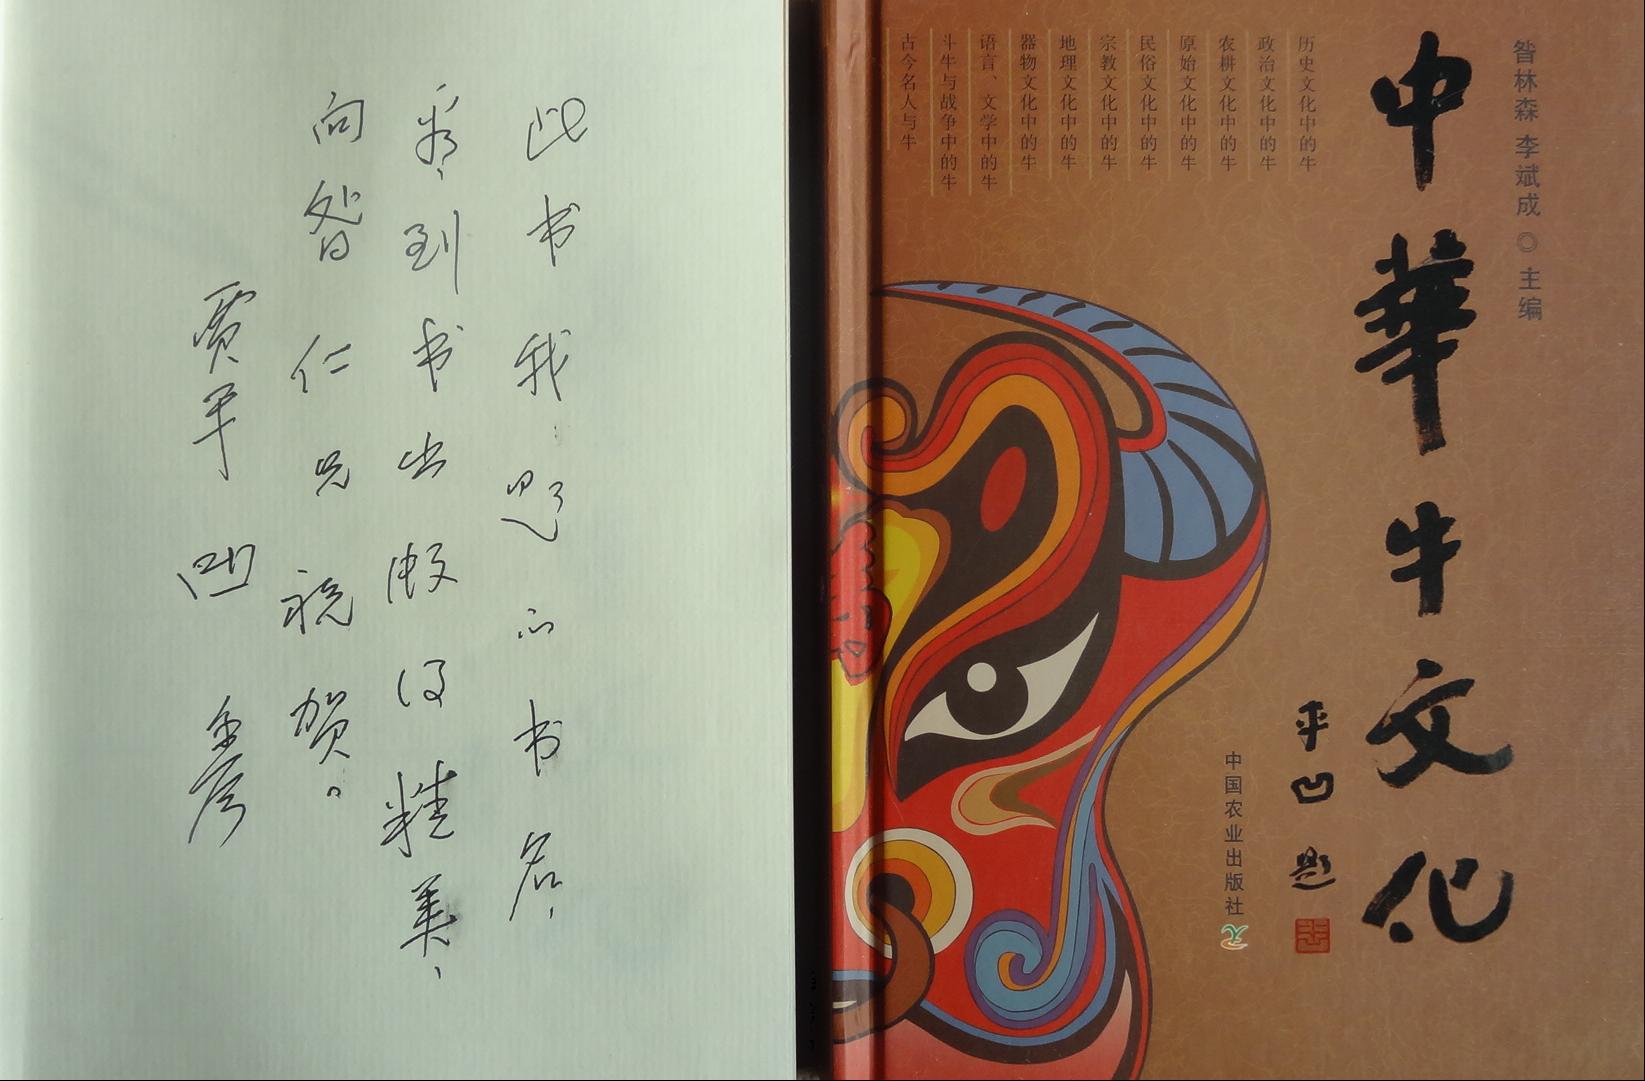 此书我题的书名，
看到书出版得精美，
向昝仁兄祝贺。
贾平凹
昝林森 李斌成 ◎ 主编
中華牛文化
平凹 题
中国农业出版社
历史文化中的牛
政治文化中的牛
农耕文化中的牛
原始文化中的牛
民俗文化中的牛
宗教文化中的牛
地理文化中的牛
器物文化中的牛
语言、文学中的牛
斗牛与战争中的牛
古今名人与牛